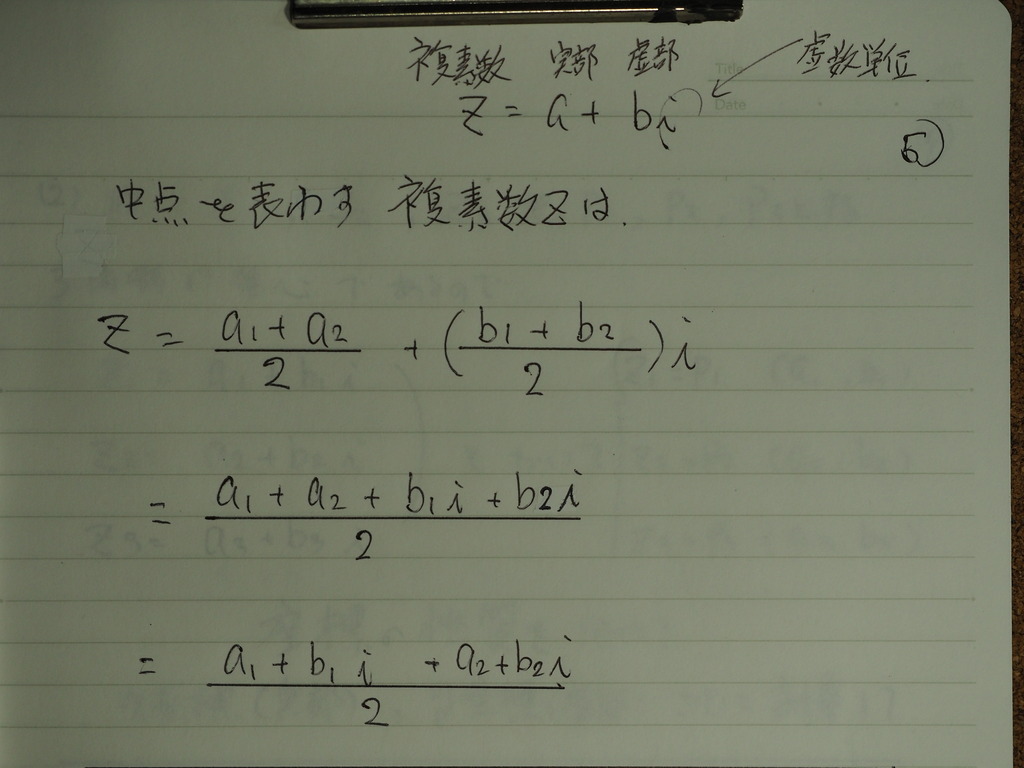 複素数 実部 虚部 虚数単位.
Title
Z = a + bi
Date
5
中点を表わす 複素数Zは.
Z = (a1 + a2)/2 + ((b1 + b2)/2)i
= (a1 + a2 + b1i + b2i)/2
= (a1 + b1i + a2 + b2i)/2